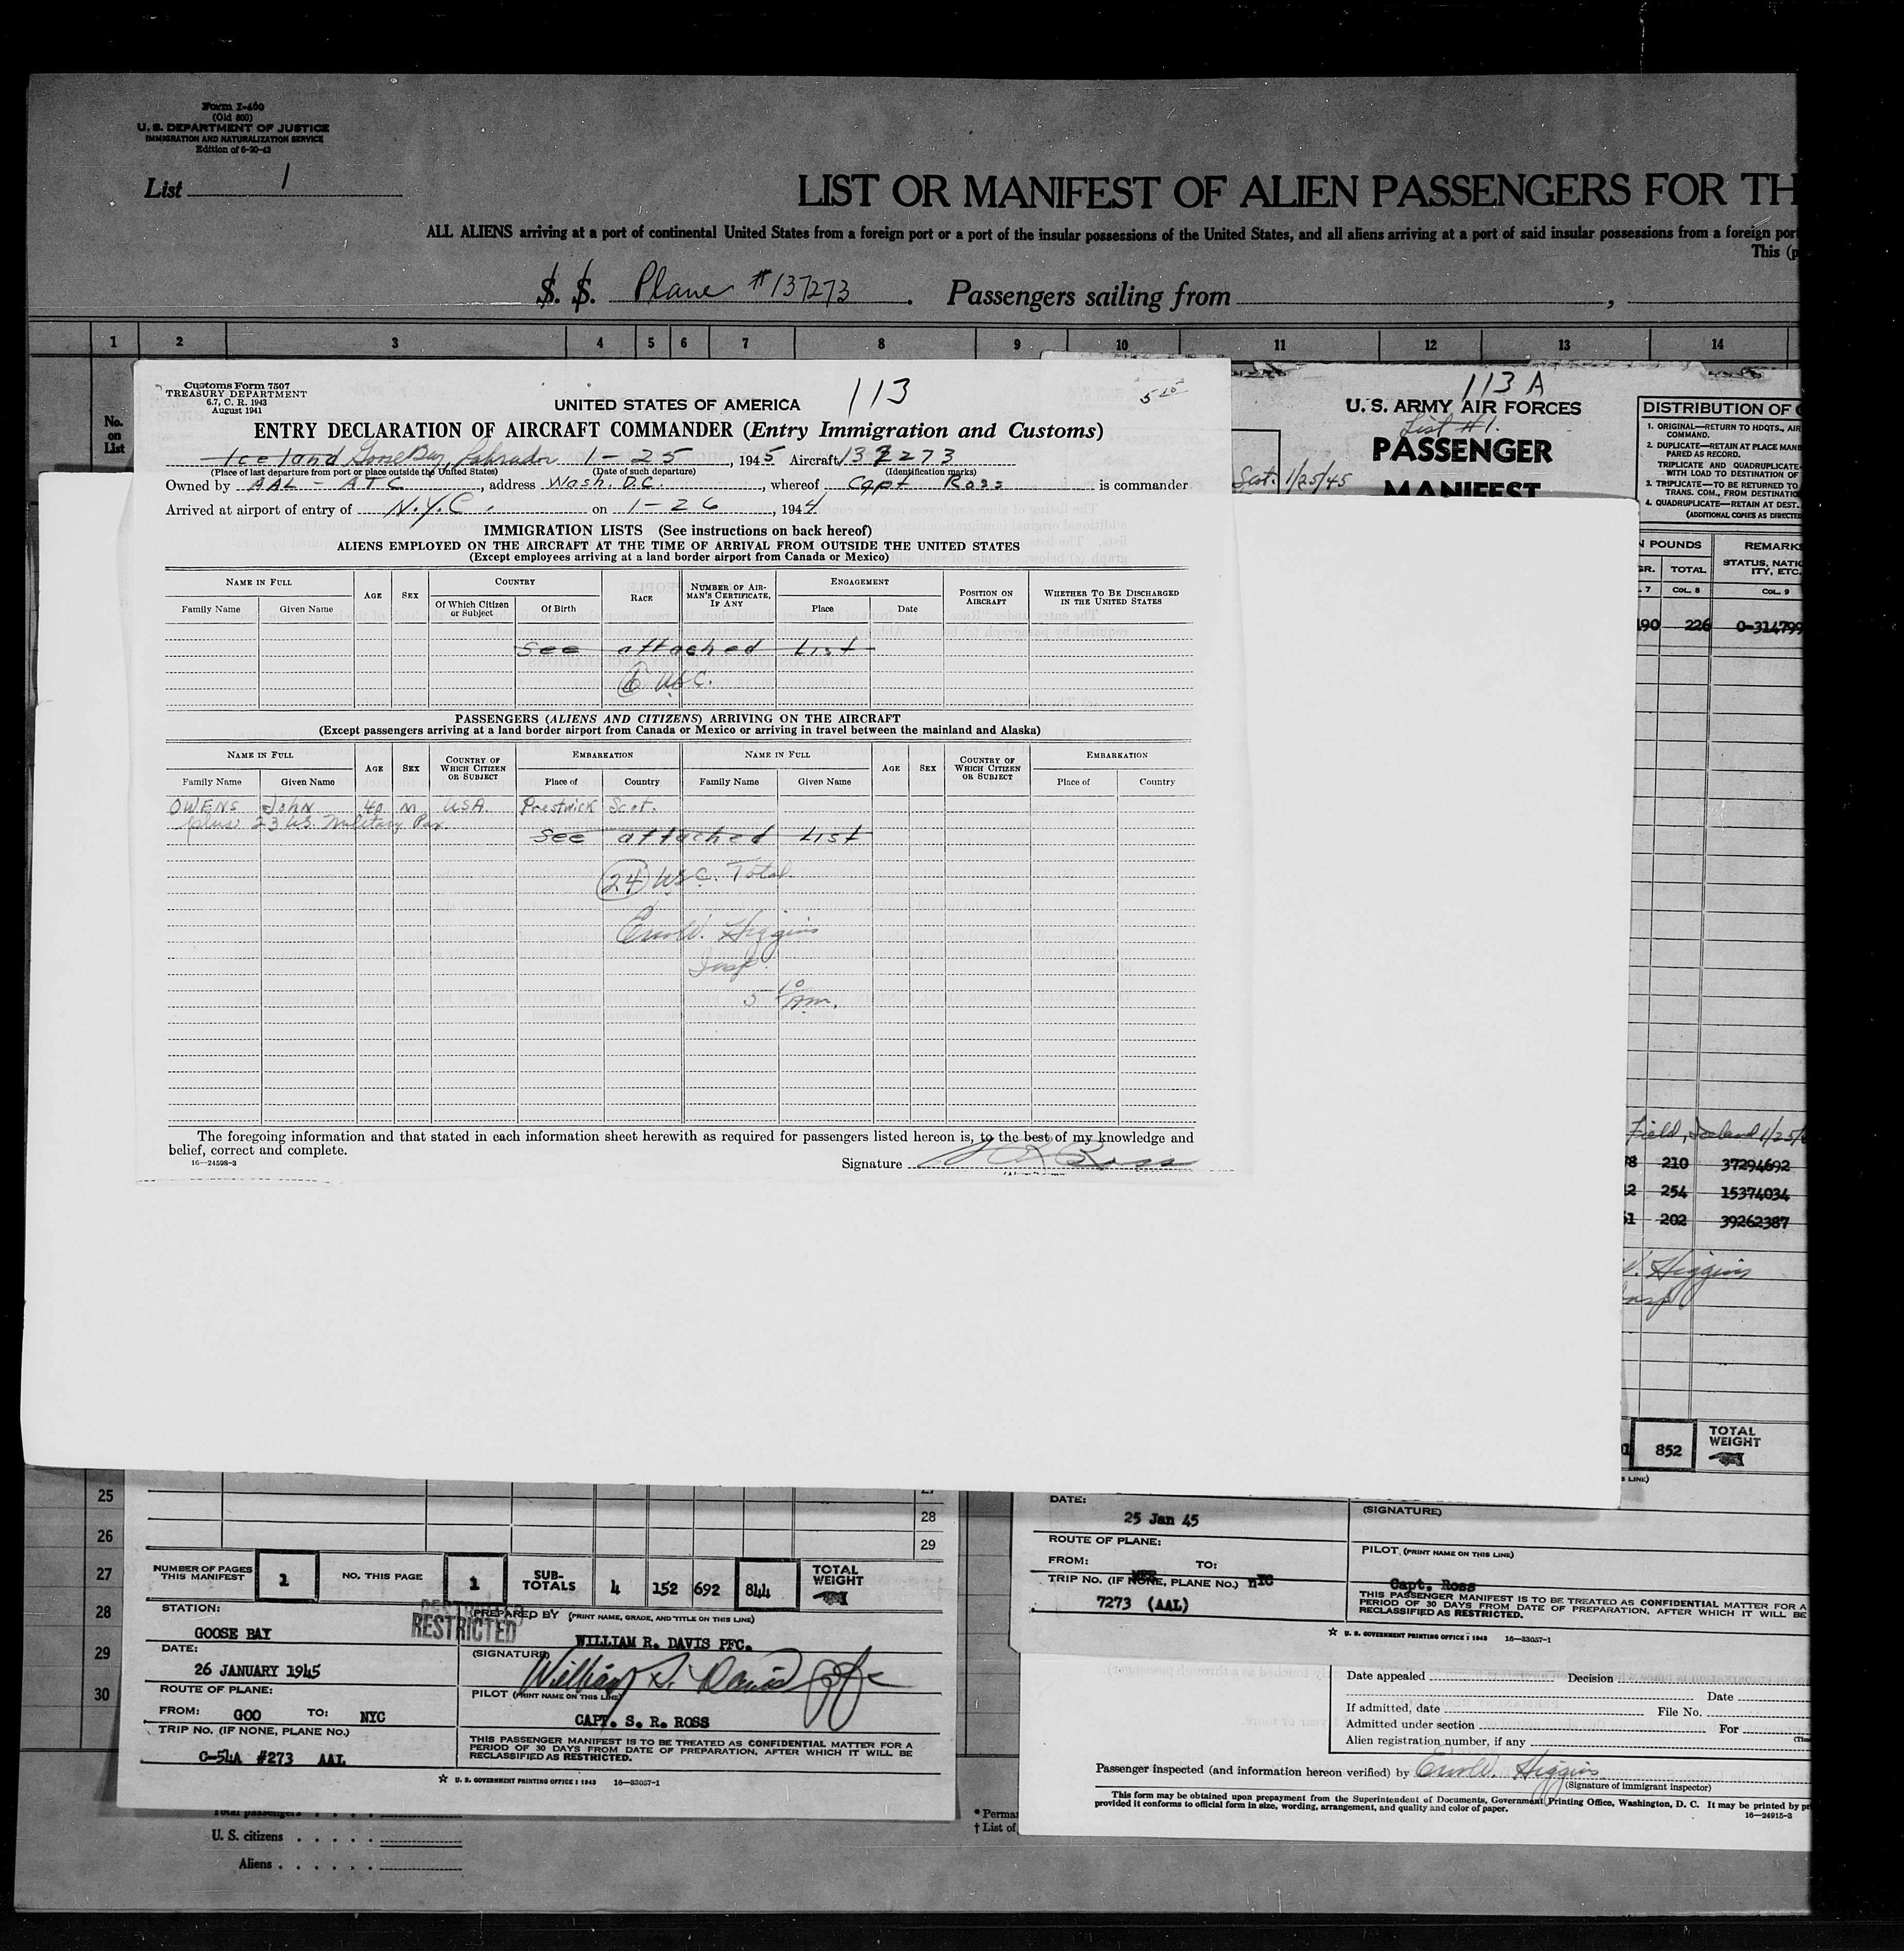 Form I-400
(Old 500)
U. S. DEPARTMENT OF JUSTICE
IMMIGRATION AND NATURALIZATION SERVICE
Edition of 6-20-42
List 1
LIST OR MANIFEST OF ALIEN PASSENGERS FOR TH
ALL ALIENS arriving at a port of continental United States from a foreign port or a port of the insular possessions of the United States, and all aliens arriving at a port of said insular possessions from a foreign port
This (p
S. S. Plane #137273 . Passengers sailing from ,
1 2 3 4 5 6 7 8 9 10 11 12 13 14
No. on List
Customs Form 7507
TREASURY DEPARTMENT
6.7, C. R. 1943
August 1941
UNITED STATES OF AMERICA
113
ENTRY DECLARATION OF AIRCRAFT COMMANDER (Entry Immigration and Customs)
Iceland Goose Bay, Labrador 1-25, 1945 Aircraft 137273
(Place of last departure from port or place outside the United States) (Date of such departure) (Identification marks)
Owned by AAL - ATC, address Wash. D.C., whereof Capt Ross is commander
Arrived at airport of entry of N.Y.C. on 1-26, 1944
IMMIGRATION LISTS (See instructions on back hereof)
ALIENS EMPLOYED ON THE AIRCRAFT AT THE TIME OF ARRIVAL FROM OUTSIDE THE UNITED STATES
(Except employees arriving at a land border airport from Canada or Mexico)
NAME IN FULL AGE SEX COUNTRY RACE NUMBER OF AIRMAN'S CERTIFICATE, IF ANY ENGAGEMENT POSITION ON AIRCRAFT WHETHER TO BE DISCHARGED IN THE UNITED STATES
Family Name Given Name Of Which Citizen or Subject Of Birth Place Date
See attached List
6 USC.
PASSENGERS (ALIENS AND CITIZENS) ARRIVING ON THE AIRCRAFT
(Except passengers arriving at a land border airport from Canada or Mexico or arriving in travel between the mainland and Alaska)
NAME IN FULL AGE SEX COUNTRY OF WHICH CITIZEN OR SUBJECT EMBARKATION NAME IN FULL AGE SEX COUNTRY OF WHICH CITIZEN OR SUBJECT EMBARKATION
Family Name Given Name Place of Country Family Name Given Name Place of Country
OWENS John 40 M USA Prestwick Scot.
plus 23 U.S. Military Pax.
See attached List
24 USC. Total
Higgins
Insp.
5 10 Am.
The foregoing information and that stated in each information sheet herewith as required for passengers listed hereon is, to the best of my knowledge and
belief, correct and complete.
16—24598-3
Signature Ross
113 A
U. S. ARMY AIR FORCES
List #1.
PASSENGER
MANIFEST
Scot. 1/25/45
DISTRIBUTION OF C
1. ORIGINAL—RETURN TO HDQTS., AIR
COMMAND.
2. DUPLICATE—RETAIN AT PLACE MANI
PARED AS RECORD.
TRIPLICATE AND QUADRUPLICATE-
WITH LOAD TO DESTINATION OF
3. TRIPLICATE—TO BE RETURNED TO
TRANS. COM., FROM DESTINATIO
4. QUADRUPLICATE—RETAIN AT DEST.
(ADDITIONAL COPIES AS DIRECTED
N POUNDS REMARKS
GR. TOTAL STATUS, NATIONALITY, ETC.
7 COL. 8 COL. 9
190 226 0-314799
Field, Iceland 1/25/
78 210 37294692
12 254 15374034
51 202 39262387
Higgins
Insp
852 TOTAL WEIGHT
25
26
27
28
29
30
28
29
NUMBER OF PAGES THIS MANIFEST 1 NO. THIS PAGE 1 SUB-TOTALS 4 152 692 844 TOTAL WEIGHT
STATION:
GOOSE BAY
RESTRICTED
PREPARED BY (PRINT NAME, GRADE, AND TITLE ON THIS LINE)
WILLIAM R. DAVIS PFC.
DATE:
26 JANUARY 1945
(SIGNATURE)
William R. Davis Pfc
ROUTE OF PLANE:
FROM: GOO TO: NYC
PILOT (PRINT NAME ON THIS LINE)
CAPT. S. R. ROSS
TRIP No. (IF NONE, PLANE No.)
C-54A #273 AAL
THIS PASSENGER MANIFEST IS TO BE TREATED AS CONFIDENTIAL MATTER FOR A
PERIOD OF 30 DAYS FROM DATE OF PREPARATION, AFTER WHICH IT WILL BE
RECLASSIFIED AS RESTRICTED.
☆ U. S. GOVERNMENT PRINTING OFFICE : 1943 16—33057-1
Total passengers
U. S. citizens
Aliens
DATE:
25 Jan 45
(SIGNATURE)
ROUTE OF PLANE:
FROM: TO: NYC
PILOT (PRINT NAME ON THIS LINE)
Capt. Ross
TRIP No. (IF NONE, PLANE No.)
7273 (AAL)
THIS PASSENGER MANIFEST IS TO BE TREATED AS CONFIDENTIAL MATTER FOR A
PERIOD OF 30 DAYS FROM DATE OF PREPARATION, AFTER WHICH IT WILL BE
RECLASSIFIED AS RESTRICTED.
☆ U. S. GOVERNMENT PRINTING OFFICE : 1943 16—33057-1
Date appealed Decision
Date
If admitted, date File No.
Admitted under section For
Alien registration number, if any
Passenger inspected (and information hereon verified) by Higgins
(Signature of immigrant inspector)
This form may be obtained upon prepayment from the Superintendent of Documents, Government Printing Office, Washington, D. C. It may be printed by pr
provided it conforms to official form in size, wording, arrangement, and quality and color of paper.
16—24915-3
* Perma
† List of